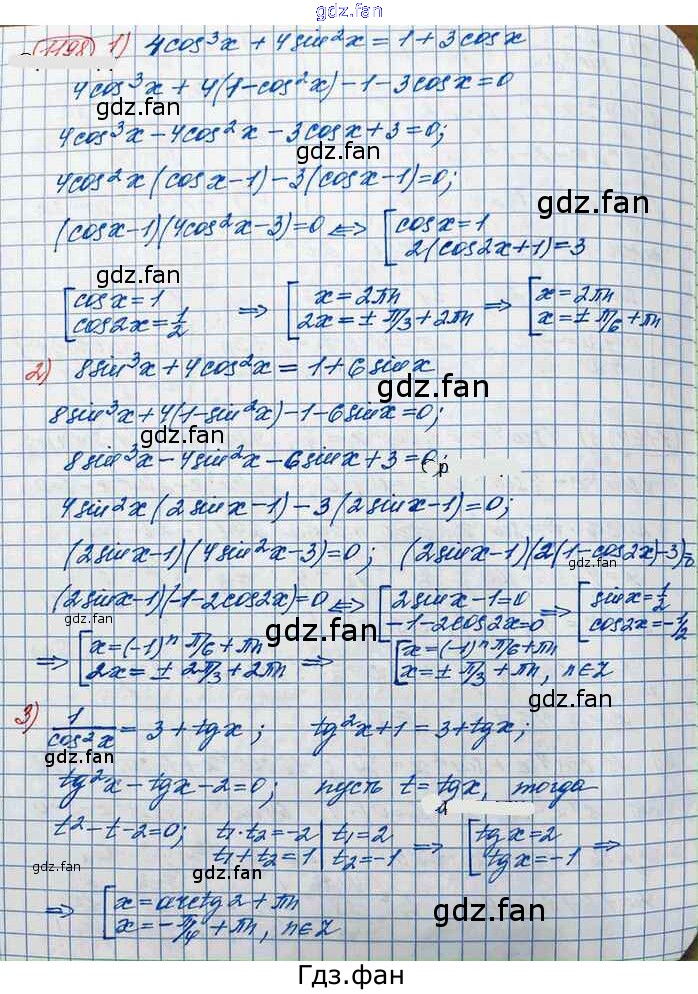 gdz.fan
1198 1) 4cos³x + 4sin²x = 1 + 3cosx
4cos³x + 4(1-cos²x) - 1 - 3cosx = 0
gdz.fan
gdz.fan
4cos³x - 4cos²x - 3cosx + 3 = 0;
gdz.fan
4cos²x(cosx-1) - 3(cosx-1) = 0;
gdz.fan
(cosx-1)(4cos²x-3) = 0 <=> [cosx = 1
2(cos2x+1) = 3
gdz.fan
[cosx = 1 => [x = 2πn => [x = 2πn
cos2x = 1/2 2x = ± π/3 + 2πn x = ± π/6 + πn
gdz.fan
gdz.fan
2) 8sin³x + 4cos²x = 1 + 6sinx
gdz.fan
8sin³x + 4(1-sin²x) - 1 - 6sinx = 0;
gdz.fan
8sin³x - 4sin²x - 6sinx + 3 = 0;
р
4sin²x(2sinx-1) - 3(2sinx-1) = 0;
(2sinx-1)(4sin²x-3) = 0; (2sinx-1)(2(1-cos2x)-3)=0
gdz.fan
(2sinx-1)(-1-2cos2x) = 0 <=> [2sinx-1=0 => [sinx = 1/2
-1-2cos2x=0 cos2x = -1/2
gdz.fan
gdz.fan
=> [x = (-1)ⁿ π/6 + πn => [x = (-1)ⁿ π/6 + πn
2x = ± 2π/3 + 2πn x = ± π/3 + πn, n∈Z
gdz.fan
3) 1/cos²x = 3 + tgx; tg²x + 1 = 3 + tgx;
gdz.fan
tg²x - tgx - 2 = 0; пусть t = tgx, тогда
t² - t - 2 = 0; t₁·t₂ = -2 | t₁ = 2 => [tgx = 2 =>
t₁ + t₂ = 1 | t₂ = -1 tgx = -1
gdz.fan
gdz.fan
=> [x = arctg2 + πn
x = -π/4 + πn, n∈Z
gdz.fan
Гдз.фан